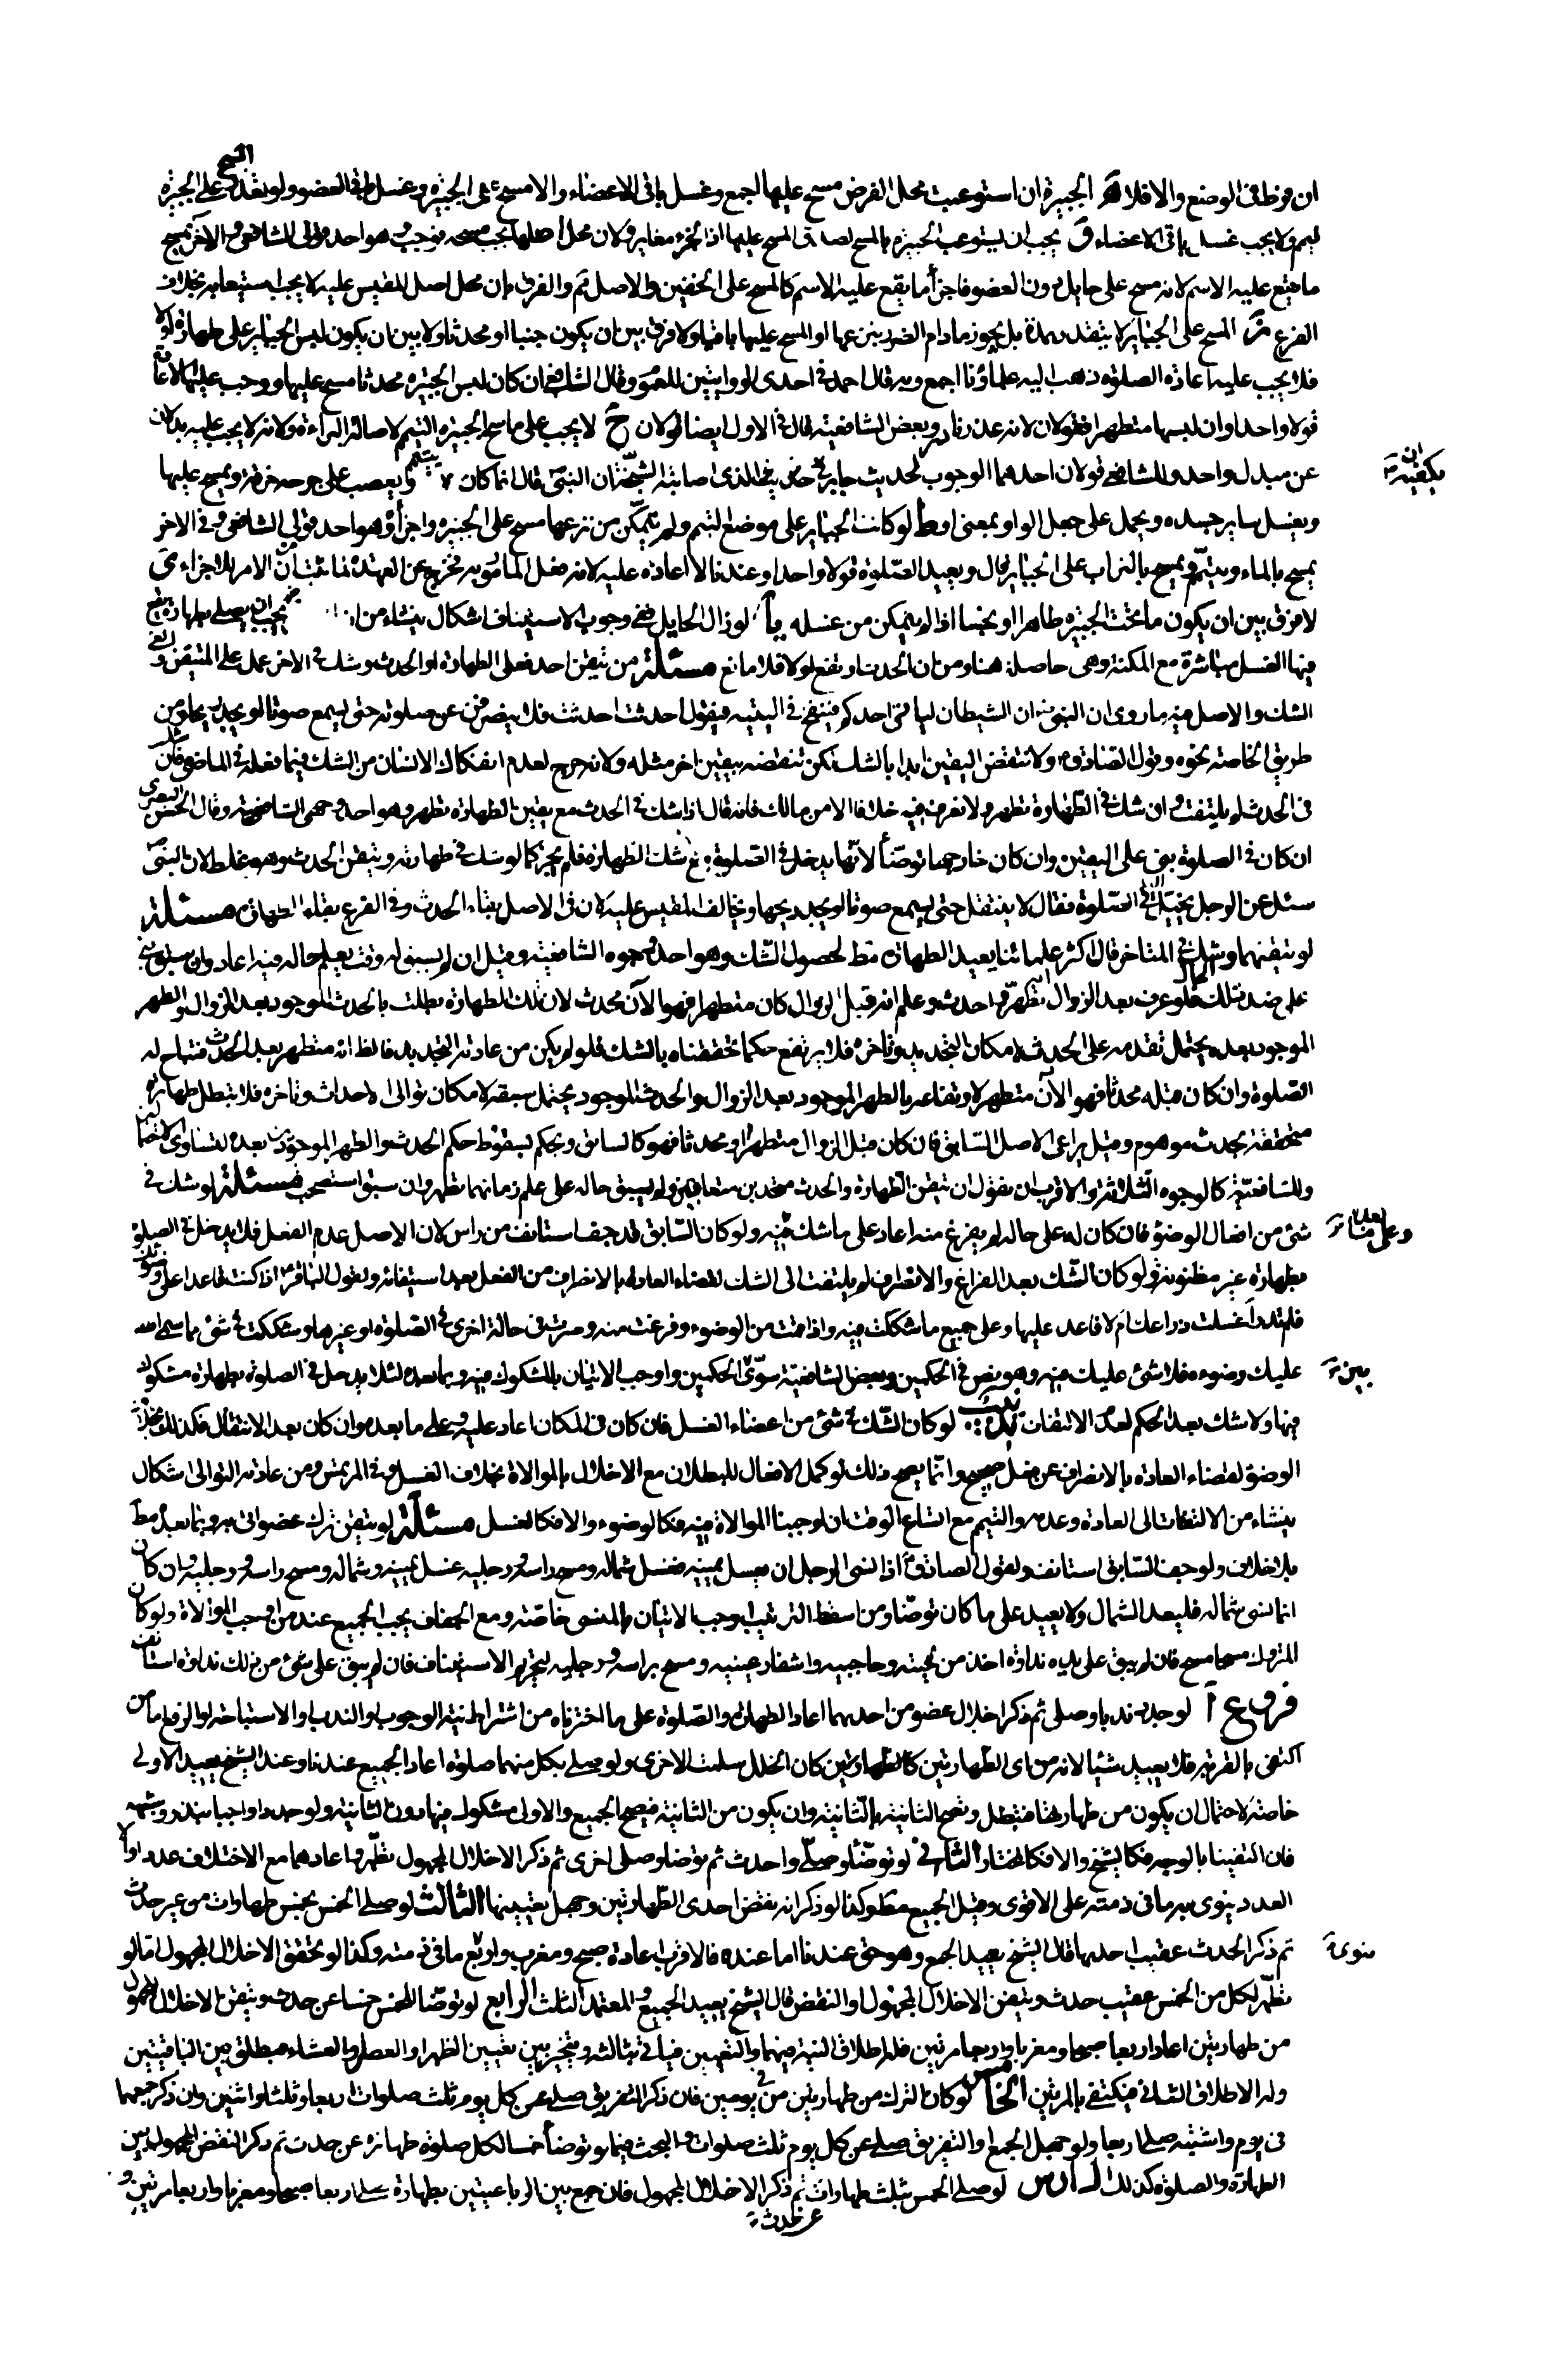 ان فرطا فى الوضع والا فلا هـ الجبيرة ان استوعبت محل الفرض مسح عليها اجمع وغسل باقى الاعضاء والا مسح على الجبيرة وغسل باقى العضو ولو تعذر المسح على الجبيرة
تيمم ولا يجب غسل باقى الاعضاء و يجب ان يستوعب الجبيرة بالمسح لصدق المسح عليها اذ الجزء مغاير ولان محل اصلها يجب مسحه فوجب وهو احد قولى الشافعى وفى الاخر يمسح
ما يقع عليه الاسم لانه مسح على حايل دون العضو فاجزأ ما يقع عليه الاسم كالمسح على الخفين والاصل ثم والفرق بان محل اصل المقيس عليه لا يجب استيعابه بخلاف
الفرع ز المسح على الجباير لا يتقدر بمدة بل يجوز مادام الضرر بنزعها او المسح عليها باقيا ولا فرق بين ان يكون جنبا او محدثا ولا بين ان يكون لبس الجباير على طهارة او لا
فلا يجب عليه اعادة الصلوة ذهب اليه علماؤنا اجمع وبه قال احمد فى احدى الروايتين للعموم وقال الشافعى ان كان لبس الجبيرة محدثا مسح عليها ووجب عليه الاعادة
قولا واحدا وان لبسها متطهرا فقولان لانه عذر نادر ولبعض الشافعية قال فى الاول ايضا قولان ح لا يجب على ماسح الجبيرة التيمم لاصالة البراءة ولانه لا يجب عليه بدلان
عن مبدل واحد وللشافعى قولان احدهما الوجوب لحديث جابر فى الذى اصابته الشجة ان النبى قال انما كان يكفيه ان يتيمم ويعصب على جرحه خرقة ويمسح عليها
ويغسل ساير جسده ويحمل على جعل الواو بمعنى او ط لو كانت الجباير على موضع التيمم ولم يتمكن من نزعها مسح على الجبيرة واجزأ وهو احد قولى الشافعى وفى الاخر
يمسح بالماء ويتيمم ويمسح بالتراب على الجباير قال ويعيد الصلوة قولا واحدا وعندنا لا اعادة عليه لانه فعل المأمور به فخرج عن العهدة لما ثبت ان الامر للاجزاء ى
لا فرق بين ان يكون ما تحت الجبيرة طاهرا او نجسا اذا لم يتمكن من غسله يا لو زال الحايل ففى وجوب الاستيناف اشكال ينشاء من يجب ان يصلى بطهارة يقع
فيها الغسل مباشرة مع المكنة وهى حاصلة هنا ومن ان الحدث ارتفع اولا فلا مانع مسئلة من تيقن احد فعلى الطهارة او الحدث وشك فى الاخر عمل على المتيقن والغى
الشك والاصل فيه ما روى ان النبى قال ان الشيطان لياتى احدكم فينفخ فى اليتيه فيقول احدثت احدثت فلا ينصرفن عن صلوته حتى يسمع صوتا او يجد ريحا ومن
طريق الخاصة نحوه وقول الصادق ولا تنقض اليقين ابدا بالشك لكن تنقضه بيقين اخر مثله ولانه حرج لعدم انفكاك الانسان من الشك فيما فعله فى الماضى فان شك
فى الحدث لم يلتفت وان شك فى الطهارة تطهر ولا نعرف فيه خلافا الا من مالك فانه قال اذا شك فى الحدث مع يقين الطهارة تطهر وهو احد وجهى الشافعية وقال الحسن البصرى
ان كان فى الصلوة بنى على اليقين وان كان خارجها توضأ لانها يدخل فى الصلوة مع شك الطهارة فلم يجز كما لو شك فى طهارته وتيقن الحدث وهو غلط لان النبى
سئل عن الرجل يخيل اليه فى الصلوة فقال لا ينفتل حتى يسمع صوتا او يجد ريحا ويخالف المقيس عليه لان فى الاصل بقاء الحدث وفى الفرع بقاء الطهارة مسئلة
لو تيقنهما وشك فى المتاخر قال اكثر علمائنا يعيد الطهارة مط لحصول الشك وهو احد وجوه الشافعية وقيل ان لم يسبق له وقت يعلم حاله فيه اعاد وان سبق بنى
على ضد تلك الحال فلو عرف بعد الزوال انه تطهر واحدث وعلم انه قبل الزوال كان متطهرا فهو الآن محدث لان تلك الطهارة بطلت بالحدث الموجود بعد الزوال والطهر
الموجود بعده يحتمل تقدمه على الحدث لامكان التجديد وتاخره فلا يرتفع حكما تحققناه بالشك فلو لم يكن من عادته التجديد فالظ انه متطهر بعد الحدث فتباح له
الصلوة وان كان قبله محدثا فهو الآن متطهر لارتفاعه بالطهر الموجود بعد الزوال والحدث الموجود يحتمل سبقه لامكان توالى الاحداث وتاخره فلا تبطل طهارة
متحققة بحدث موهوم وقيل يراعى الاصل السابق فان كان قبل الزوال متطهرا او محدثا فهو كالسابق ويحكم بسقوط حكم الحدث والطهر الموجودين بعده لتساوى الاحتمالين
وللشافعية كالوجوه الثلاثة والاقرب ان نقول ان تيقن الطهارة والحدث متحدين متعاقبين ولم يسبق حاله على علم زمانهما تطهر وان سبق استصحب مسئلة لو شك فى
شئ من افعال الوضوء فان كان على حاله لم يفرغ منه اعاد على ما شك فيه وعلى ما بعده ولو كان السابق قد جف استانف من راس لان الاصل عدم الفعل فلا يدخل فى الصلوة
بطهارة غير مظنونة ولو كان الشك بعد الفراغ والانصراف لم يلتفت الى الشك لقضاء العادة بالانصراف من الفعل بعد استيفائه ولقول الباقر اذا كنت قاعدا على وضوئك
فلم تدر اغسلت ذراعك ام لا فاعد عليها وعلى جميع ما شككت فيه واذا قمت من الوضوء وفرغت منه وصرت فى حالة اخرى فى الصلوة او غيرها وشككت فى شئ مما سمى الله
عليك وضوءه فلا شئ عليك فيه وهو نص فى الحكمين وبعض الشافعية سوى بين الحكمين واوجب الاتيان بالمشكوك فيه وبما بعده لئلا يدخل فى الصلوة بطهارة مشكوك
فيها ولا شك بعد الحكم لعدم الالتفات تذنيب لو كان الشك فى شئ من اعضاء الغسل فان كان فى المكان اعاد عليه وعلى ما بعده وان كان بعد الانتقال فكذلك بخلاف
الوضوء لقضاء العادة بالانصراف عن فعل صحيح وانما يصح ذلك لو كمل الافعال للبطلان مع الاخلال بالموالاة بخلاف الغسل وفى المرتمس ومن عادته التوالى اشكال
ينشاء من الالتفات الى العادة وعدمه والتيمم مع اتساع الوقت ان اوجبنا الموالاة فيه فكالوضوء والا فكالغسل مسئلة لو تيقن ترك عضو اتى به وبما بعده مط
بلا خلاف ولو جف السابق استانف ولقول الصادق اذا نسى الرجل ان يغسل يمينه فغسل شماله ومسح راسه ورجليه غسل يمينه وشماله ومسح راسه ورجليه وان كان
انما نسى شماله فليعد الشمال ولا يعيد على ما كان توضأ ومن اسقط الترتيب اوجب الاتيان بالمنسى خاصة ومع الجفاف يجب الجميع عند من اوجب الموالاة ولو كان
المتروك مسحا مسح فان لم يبق على يديه نداوة اخذ من لحيته وحاجبيه واشفار عينيه ومسح براسه ورجليه لتحريم الاستيناف فان لم يبق على شئ من ذلك نداوة استانف
فروع آ لو جدد ندبا وصلى ثم ذكر اخلال عضو من احدهما اعاد الطهارة والصلوة على ما اخترناه من اشتراط نية الوجوب والندب والاستباحة او الرفع اما من
اكتفى بالقربة فلا يعيد شيئا لانه من اى الطهارتين كان سلمت الاخرى ولو صلى بكل منهما صلوة اعاد الجميع عندنا وعند الشيخ يعيد الاولى
خاصة لاحتمال ان يكون من طهارتها فتبطل وتصح الثانية بالثانية وان يكون من الثانية فيصح الجميع والاولى مشكوك فيها دون الثانية ولو جدد واجبا بنذر وشبهه
فان اكتفينا بالوجه فكالشيخ والا فكالمختار الثانى لو توضأ وصلى واحدث ثم توضأ وصلى اخرى ثم ذكر الاخلال المجهول تطهر واعادهما مع الاختلاف عددا والا
العدد ينوى به ما فى ذمته على الاقوى وقيل الجميع مط وكذا لو ذكر انه نقض احدى الطهارتين وجهل تعيينها الثالث لو صلى الخمس بخمس طهارات من غير حدث
ثم ذكر الحدث عقيب احديها قال الشيخ يعيد الجمع وهو حق عندنا اما عنده فالاقرب اعادة صبح ومغرب واربع ما فى ذمته وكذا لو تحقق الاخلال المجهول اما لو
تطهر لكل من الخمس عقيب حدث وتيقن الاخلال المجهول او النقض قال الشيخ يعيد الجميع والمعتمد الثلث الرابع لو توضأ للخمس خمسا عن حدث وتيقن الاخلال المجهول
من طهارتين اعاد اربعا صبحا ومغربا واربعا مرتين فله اطلاق النية فيهما والتعيين فياتى بثالثة ويتخير بين تعيين الظهر او العصر او العشاء فيطلق بين الباقيتين
وله الاطلاق الثنائى فيكتفى بالمرتين الخامس لو كان الترك من طهارتين من يومين فان ذكر التفريق صلى عن كل يوم ثلث صلوات اربعا وثلثا واثنين وان ذكر جمعهما
فى يوم واشتبه صلى اربعا ولو جهل الجمع والتفريق صلى عن كل يوم ثلث صلوات والبحث فيما لو توضأ خمسا لكل صلوة طهارة عن حدث ثم ذكر النقض المجهول بين
الطهارة والصلوة كذلك السادس لو صلى الخمس بثلث طهارات ثم ذكر الاخلال المجهول فان جمع بين الرباعيتين بطهارة صلى اربعا صبحا ومغربا واربعا مرتين و
عن حدث